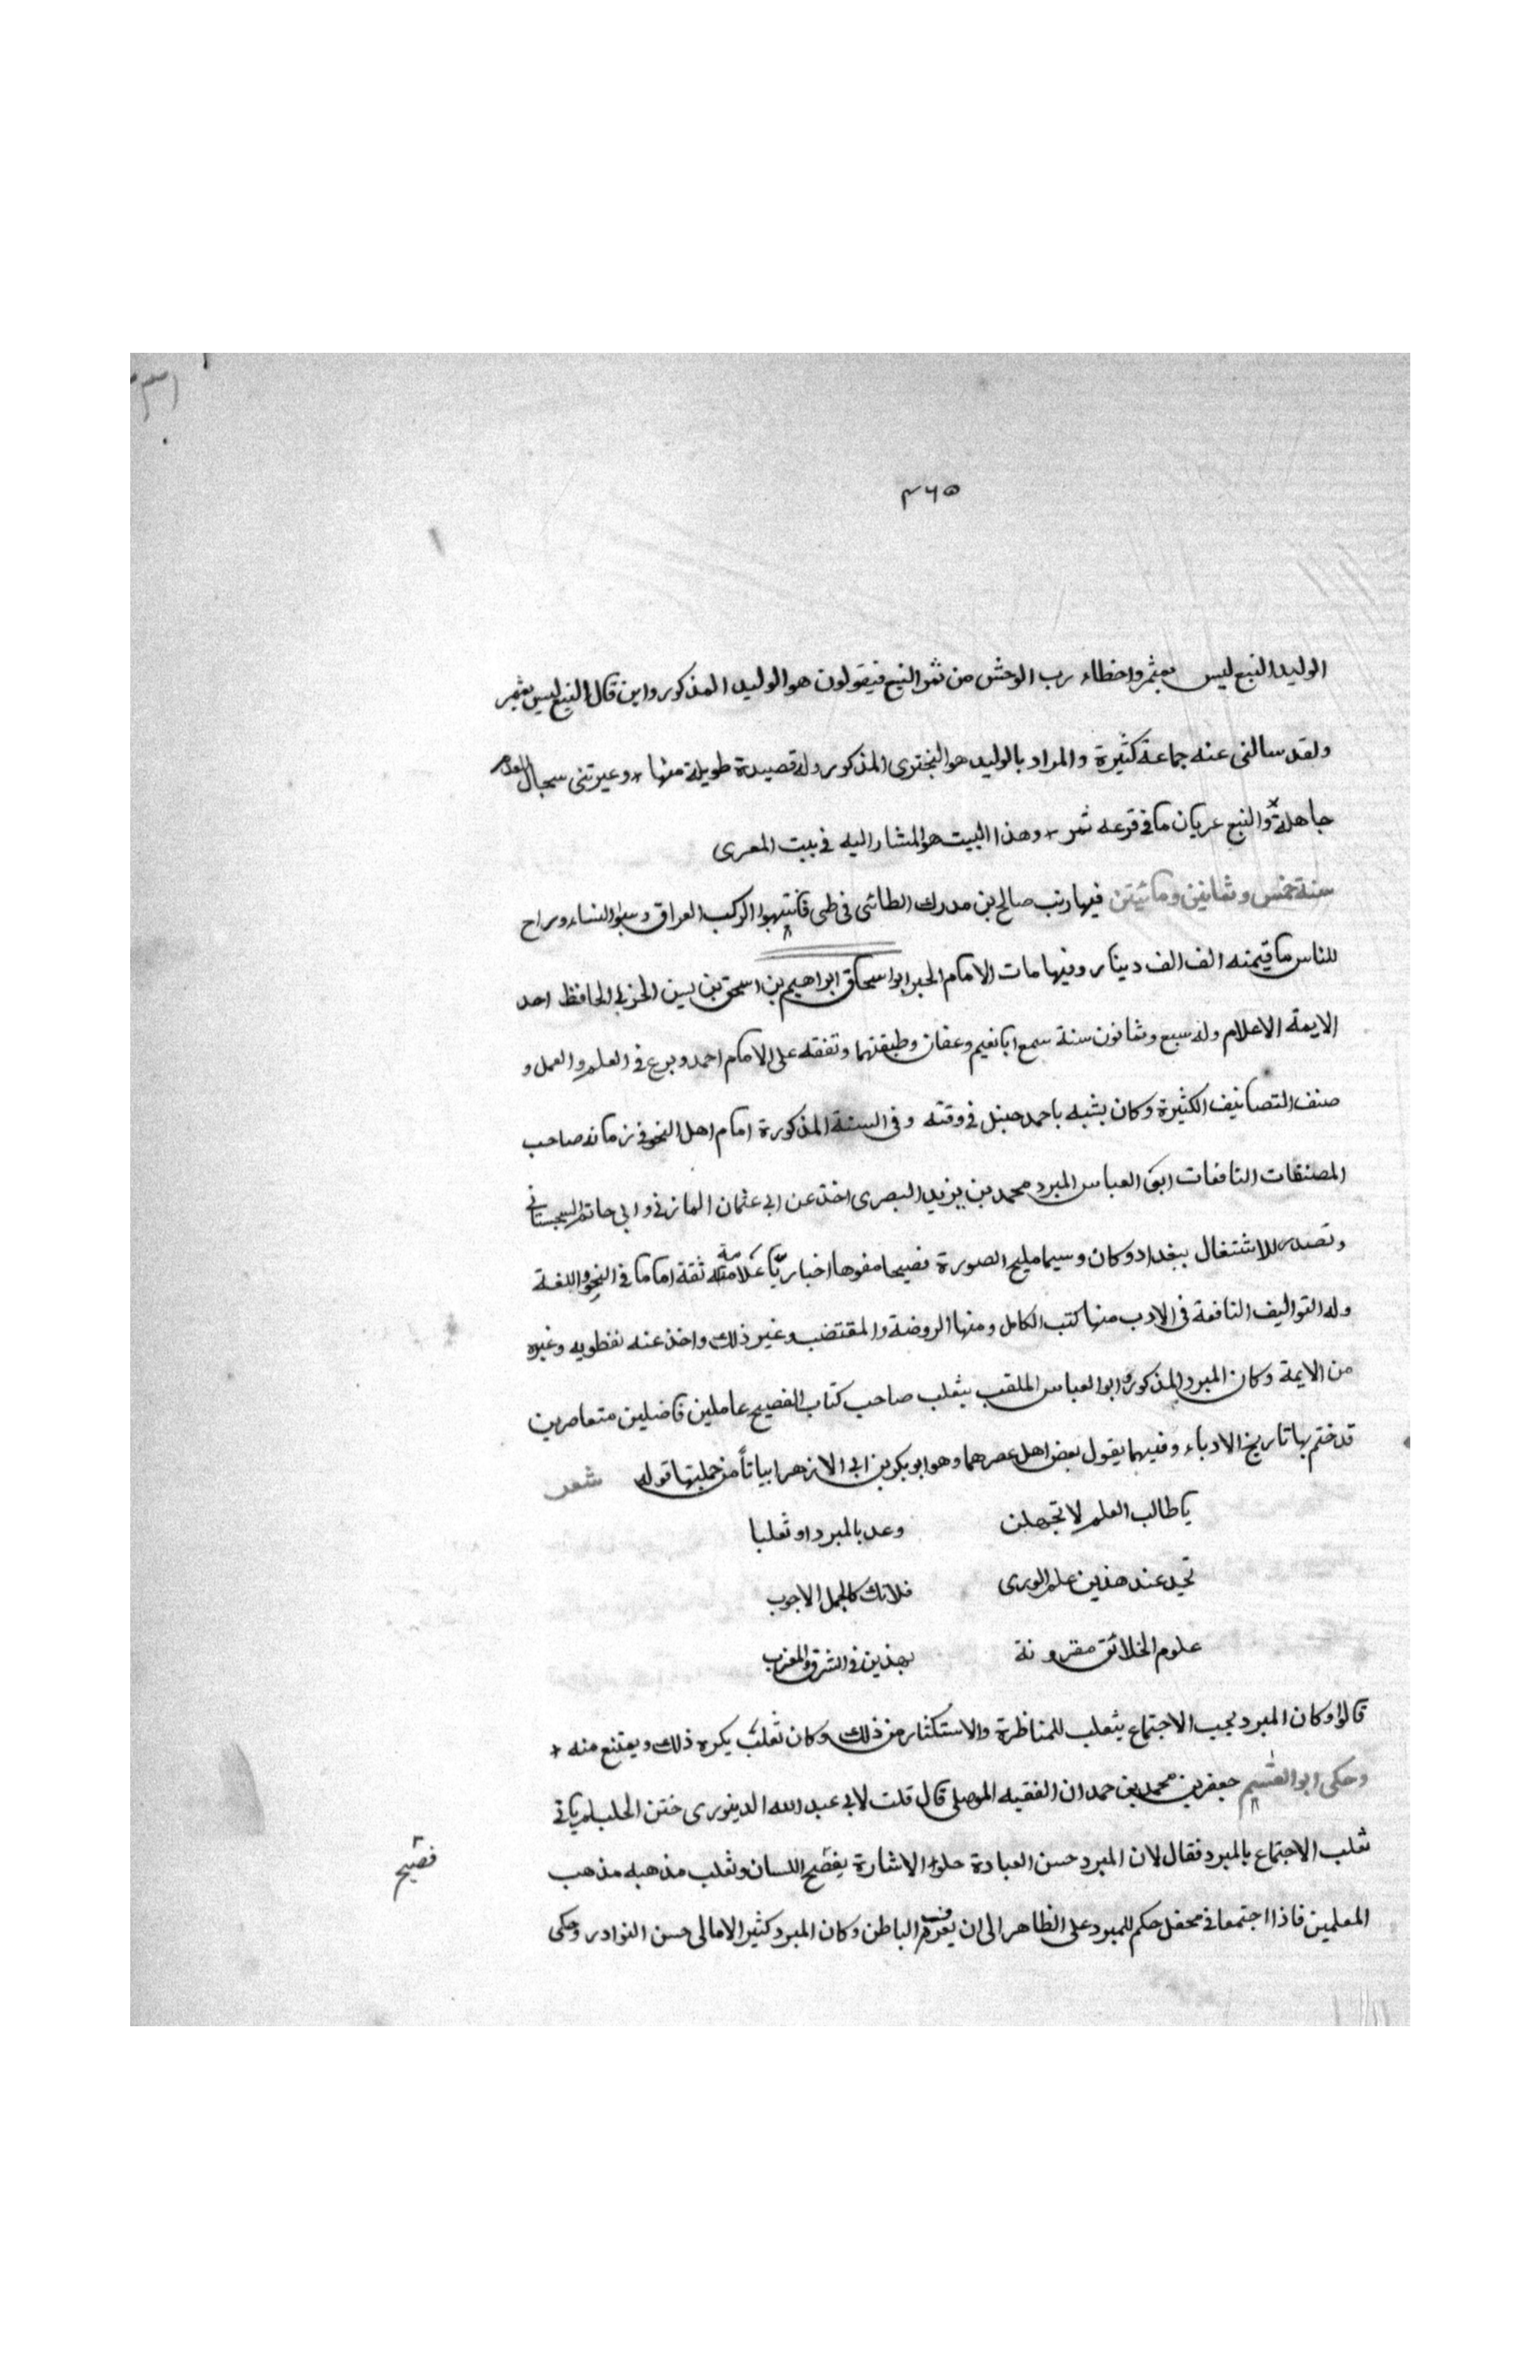 ٣٦٥
الوليد النبع ليس بمثمر واخطاء رب الوحش من ثمر النبع فيقولون هو الوليد المذكور واين قال النبع ليس بمثمر
ولقد سالنى عنه جماعة كثيرة والمراد بالوليد هو البختري المذكور وله قصيدة طويلة منها + وعيرتنى سجال العدم
جاهلة والنبع عريان ما فى فرعه ثمر + وهذا البيت هو المشار اليه فى بيت المعرى
سنة خمس وثمانين ومائيتن فيها وثب صالح بن مدرك الطائى فى طى فانتهبوا الركب العراق وسبوا النساء وراح
للناس ما قيمته الف الف دينار وفيها مات الامام الحبر ابو اسحاق ابراهيم بن اسحق بن بسير الحربى الحافظ احد
الايمة الاعلام وله سبع وثمانون سنة سمع ابا نعيم وعفان وطبقتهما وتفقه على الامام احمد وبرع فى العلم والعمل و
صنف التصانيف الكثيرة وكان يشبه باحمد حنبل فى وقته وفى السنة المذكورة امام اهل النحو فى زمانه صاحب
المصنفات النافعات ابو العباس المبرد محمد بن يزيد البصرى اخذ عن ابى عثمان المازنى وابى حاتم السجستانى
وتصدر للاشتغال ببغداد وكان وسيما مليح الصورة فصيحا مفوها اخباريّا علامة ثقة اماما فى النحو واللغة
وله التواليف النافعة فى الادب منها كتب الكامل ومنها الروضة والمقتضب وغير ذلك واخذ عنه نفطويه وغيره
من الايمة وكان المبرد المذكور وابو العباس الملقب بثعلب صاحب كتاب الفصيح عاملين فاضلين متعاصرين
قد ختم بها تاريخ الادباء وفيهما يقول بعض اهل عصرهما وهو ابو بكر بن ابى الازهر ابياتاً من جملتها قوله شعر
يا طالب العلم لا تجهلن وعد بالمبرد او ثعلبا
تجد عند هذين علم الورى فلا تك كالجمل الاجرب
علوم الخلائق مقرونة بهذين فى الشرق والمغرب
قالوا وكان المبرد يحب الاجتماع بثعلب للمناظرة والاستكثار من ذلك وكان ثعلب يكره ذلك ويمتنع منه +
وحكى ابو القسيم جعفر بن محمد بن حمدان الفقيه الموصلى قال قلت لابى عبد الله الدينورى ختن الحلب لم يابى
ثعلب الاجتماع بالمبرد فقال لان المبرد حسن العبادة حلو الاشارة فصيح اللسان وثعلب مذهبه مذهب
فصيح
المعلمين فاذا اجتمعا فى محفل حكم للمبرد على الظاهر الى ان يعرف الباطن وكان المبرد كثير الامالى حسن النوادر وحكى